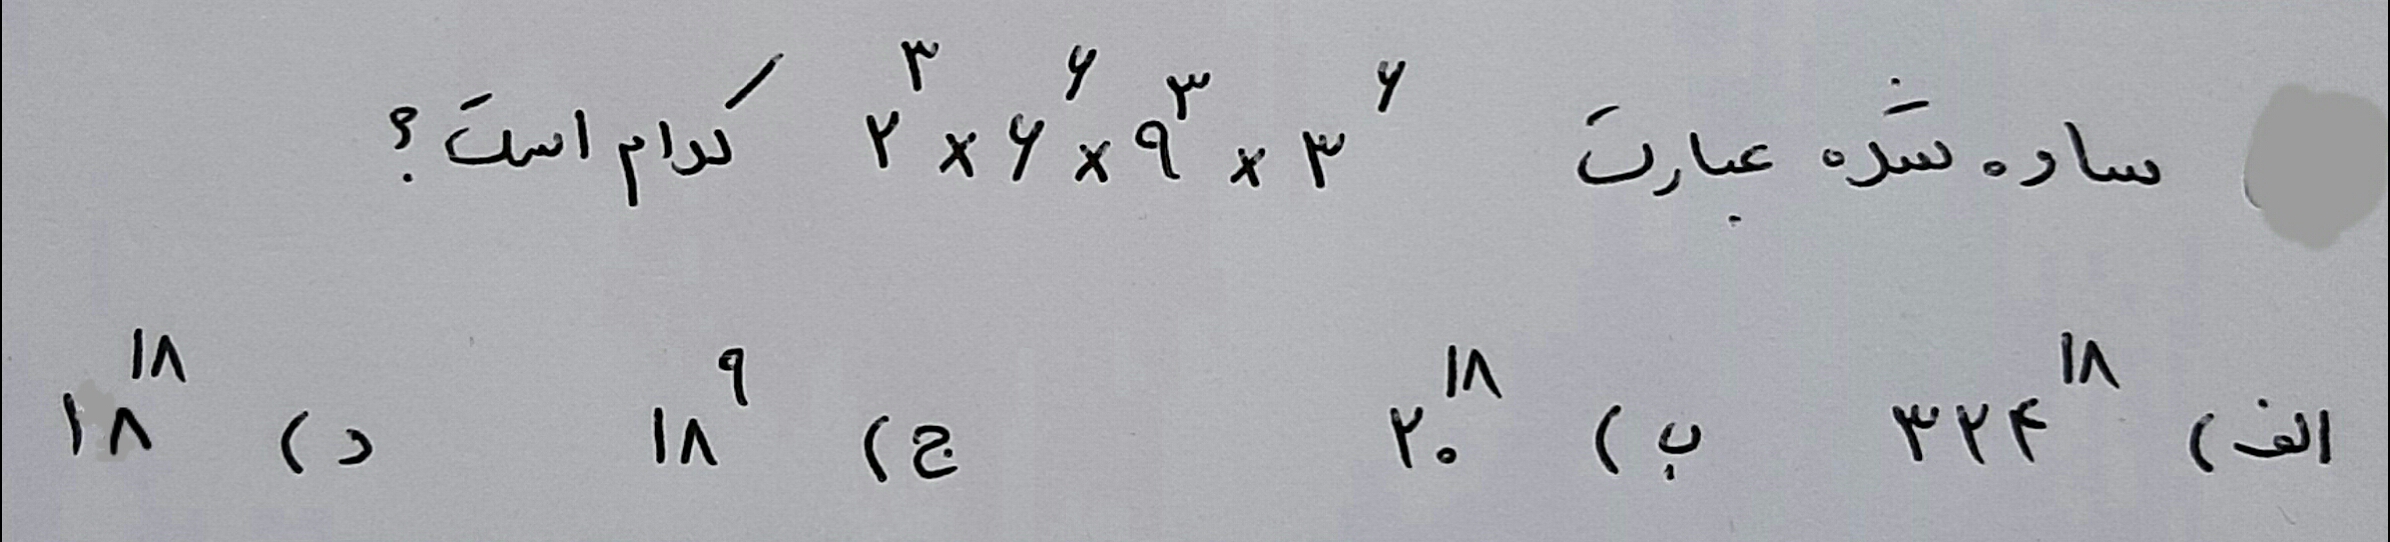 ساده شده عبارت ۲^۳ × ۶^۶ × ۹^۳ × ۳^۶ کدام است؟
الف) ۳۲۴^۱۸ ب) ۲۰^۱۸ ج) ۱۸^۹ د) ۱۸^۱۸